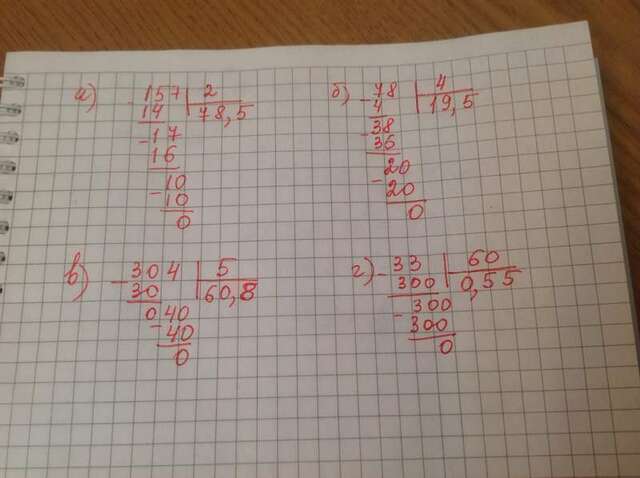 а) - 157 | 2
14 | 78,5
- 17
16
- 10
10
0
б) - 78 | 4
4 | 19,5
- 38
36
- 20
20
0
в) - 304 | 5
30 | 60,8
040
- 40
0
г) - 33 | 60
300 | 0,55
- 300
300
0